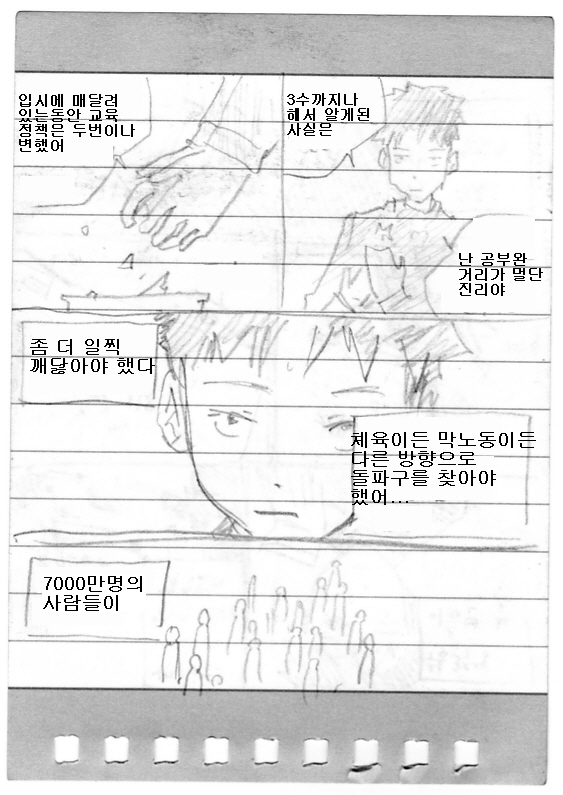 입시에 매달려
있는동안 교육
정책은 두번이나
변했어
3수까지나
해서 알게된
사실은
난 공부완
거리가 멀단
진리야
좀 더 일찍
깨닳아야 했다
체육이든 막노동이든
다른 방향으로
돌파구를 찾아야
했어...
7000만명의
사람들이